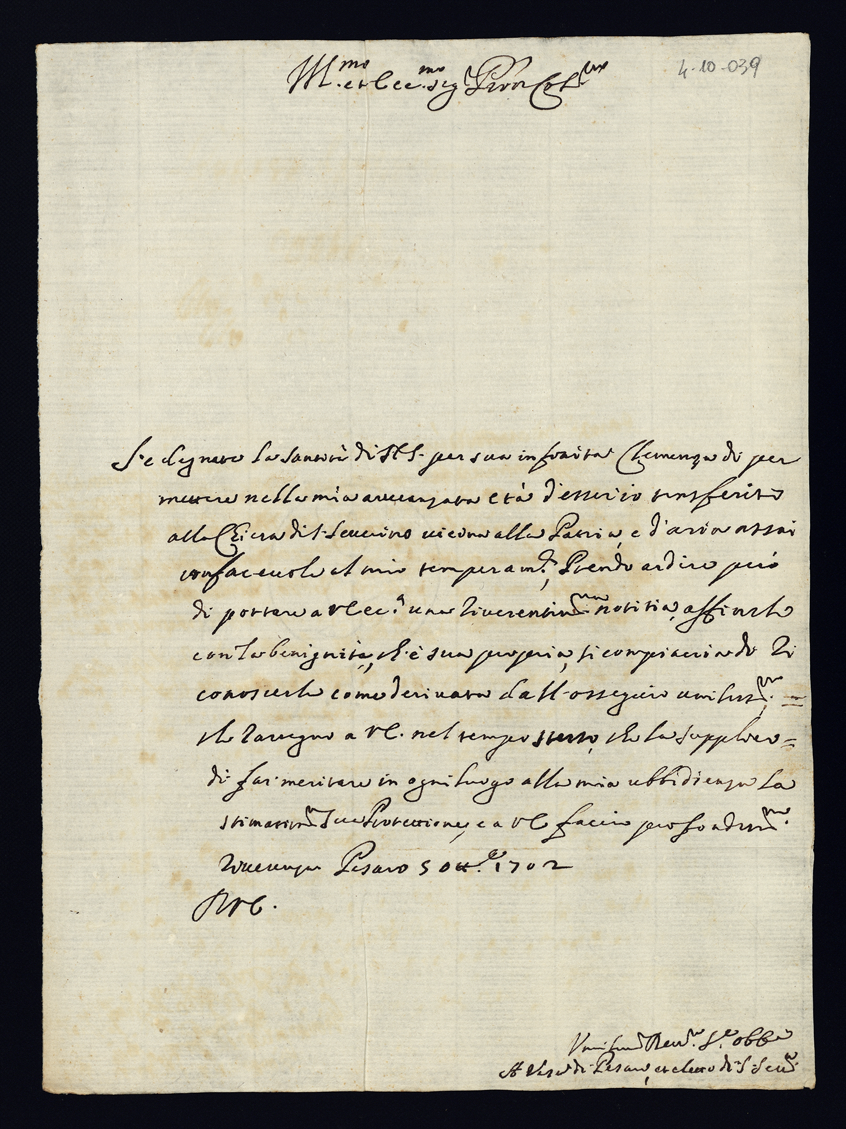 Ill.mo et Ecc.mo Sig.r Pron Col.mo
4-10-039
S'è degnata la Santità di N.S. per sua infinita Clemenza di per
mettere nella mia avvanzata età d'esser io transferito
alla Chiesa di S. Severino vicina alla Patria, e d'aria assai
confacevole al mio temperam.to, Prendo ardire però
di portare a V Ecc.a una riverentissma notitia, affinche
con la benignità, ch'è sua propria, si compiaccia di ri
conoscerla come derivata dall'ossequio umilissmo =
che rassegno a VE. nel tempo stesso, che la supplico =
di far meritare in ogni luogo alla mia ubbidienza la
stimatissma sua Protettione, e a VE faccio profondissma
riverenza Pesaro 5 Ott.e 1702
DVE.
Umilmo Devmo Sre obbmo
A Vescdi Pesaro, et eletto di S. Seuo